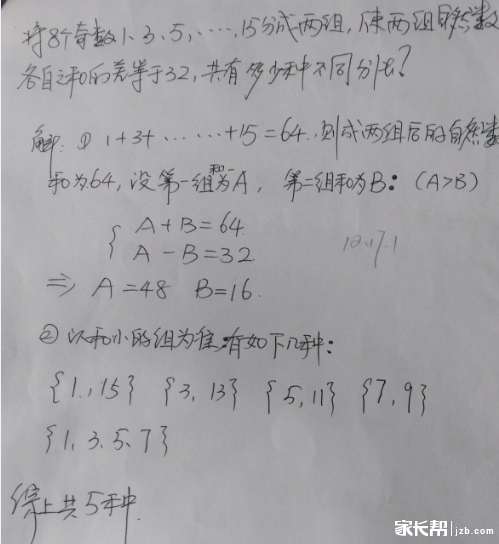 将8个奇数1、3、5,……,15分成两组,使两组自然数
各自之和的差等于32,共有多少种不同分法?
解:① 1+3+……+15=64.,则成两组后的自然数
和为64,设第一组和为A,第二组和为B:(A>B)
{ A+B=64
A-B=32
⇒ A=48 B=16.
② 以和小的组为准,有如下几种:
{1.,15} {3,13} {5,11} {7,9}
{1,3.5.7}
综上共5种.
家长帮 jzb.com